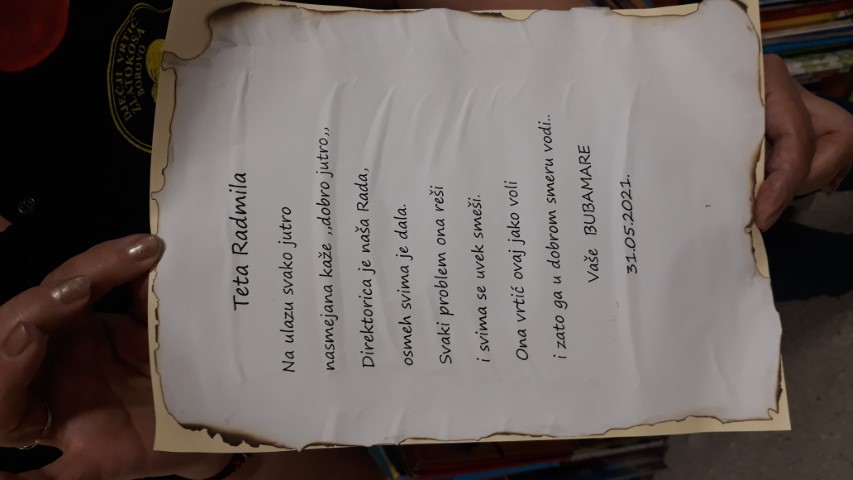 Teta Radmila
Na ulazu svako jutro
nasmejana kaže ,,dobro jutro,,
Direktorica je naša Rada,
osmeh svima je dala.
Svaki problem ona reši
i svima se uvek smeši.
Ona vrtić ovaj jako voli
i zato ga u dobrom smeru vodi..
Vaše BUBAMARE
31.05.2021.
DJEČJI VRTIĆ
ZLATOKOSA
BOROVO